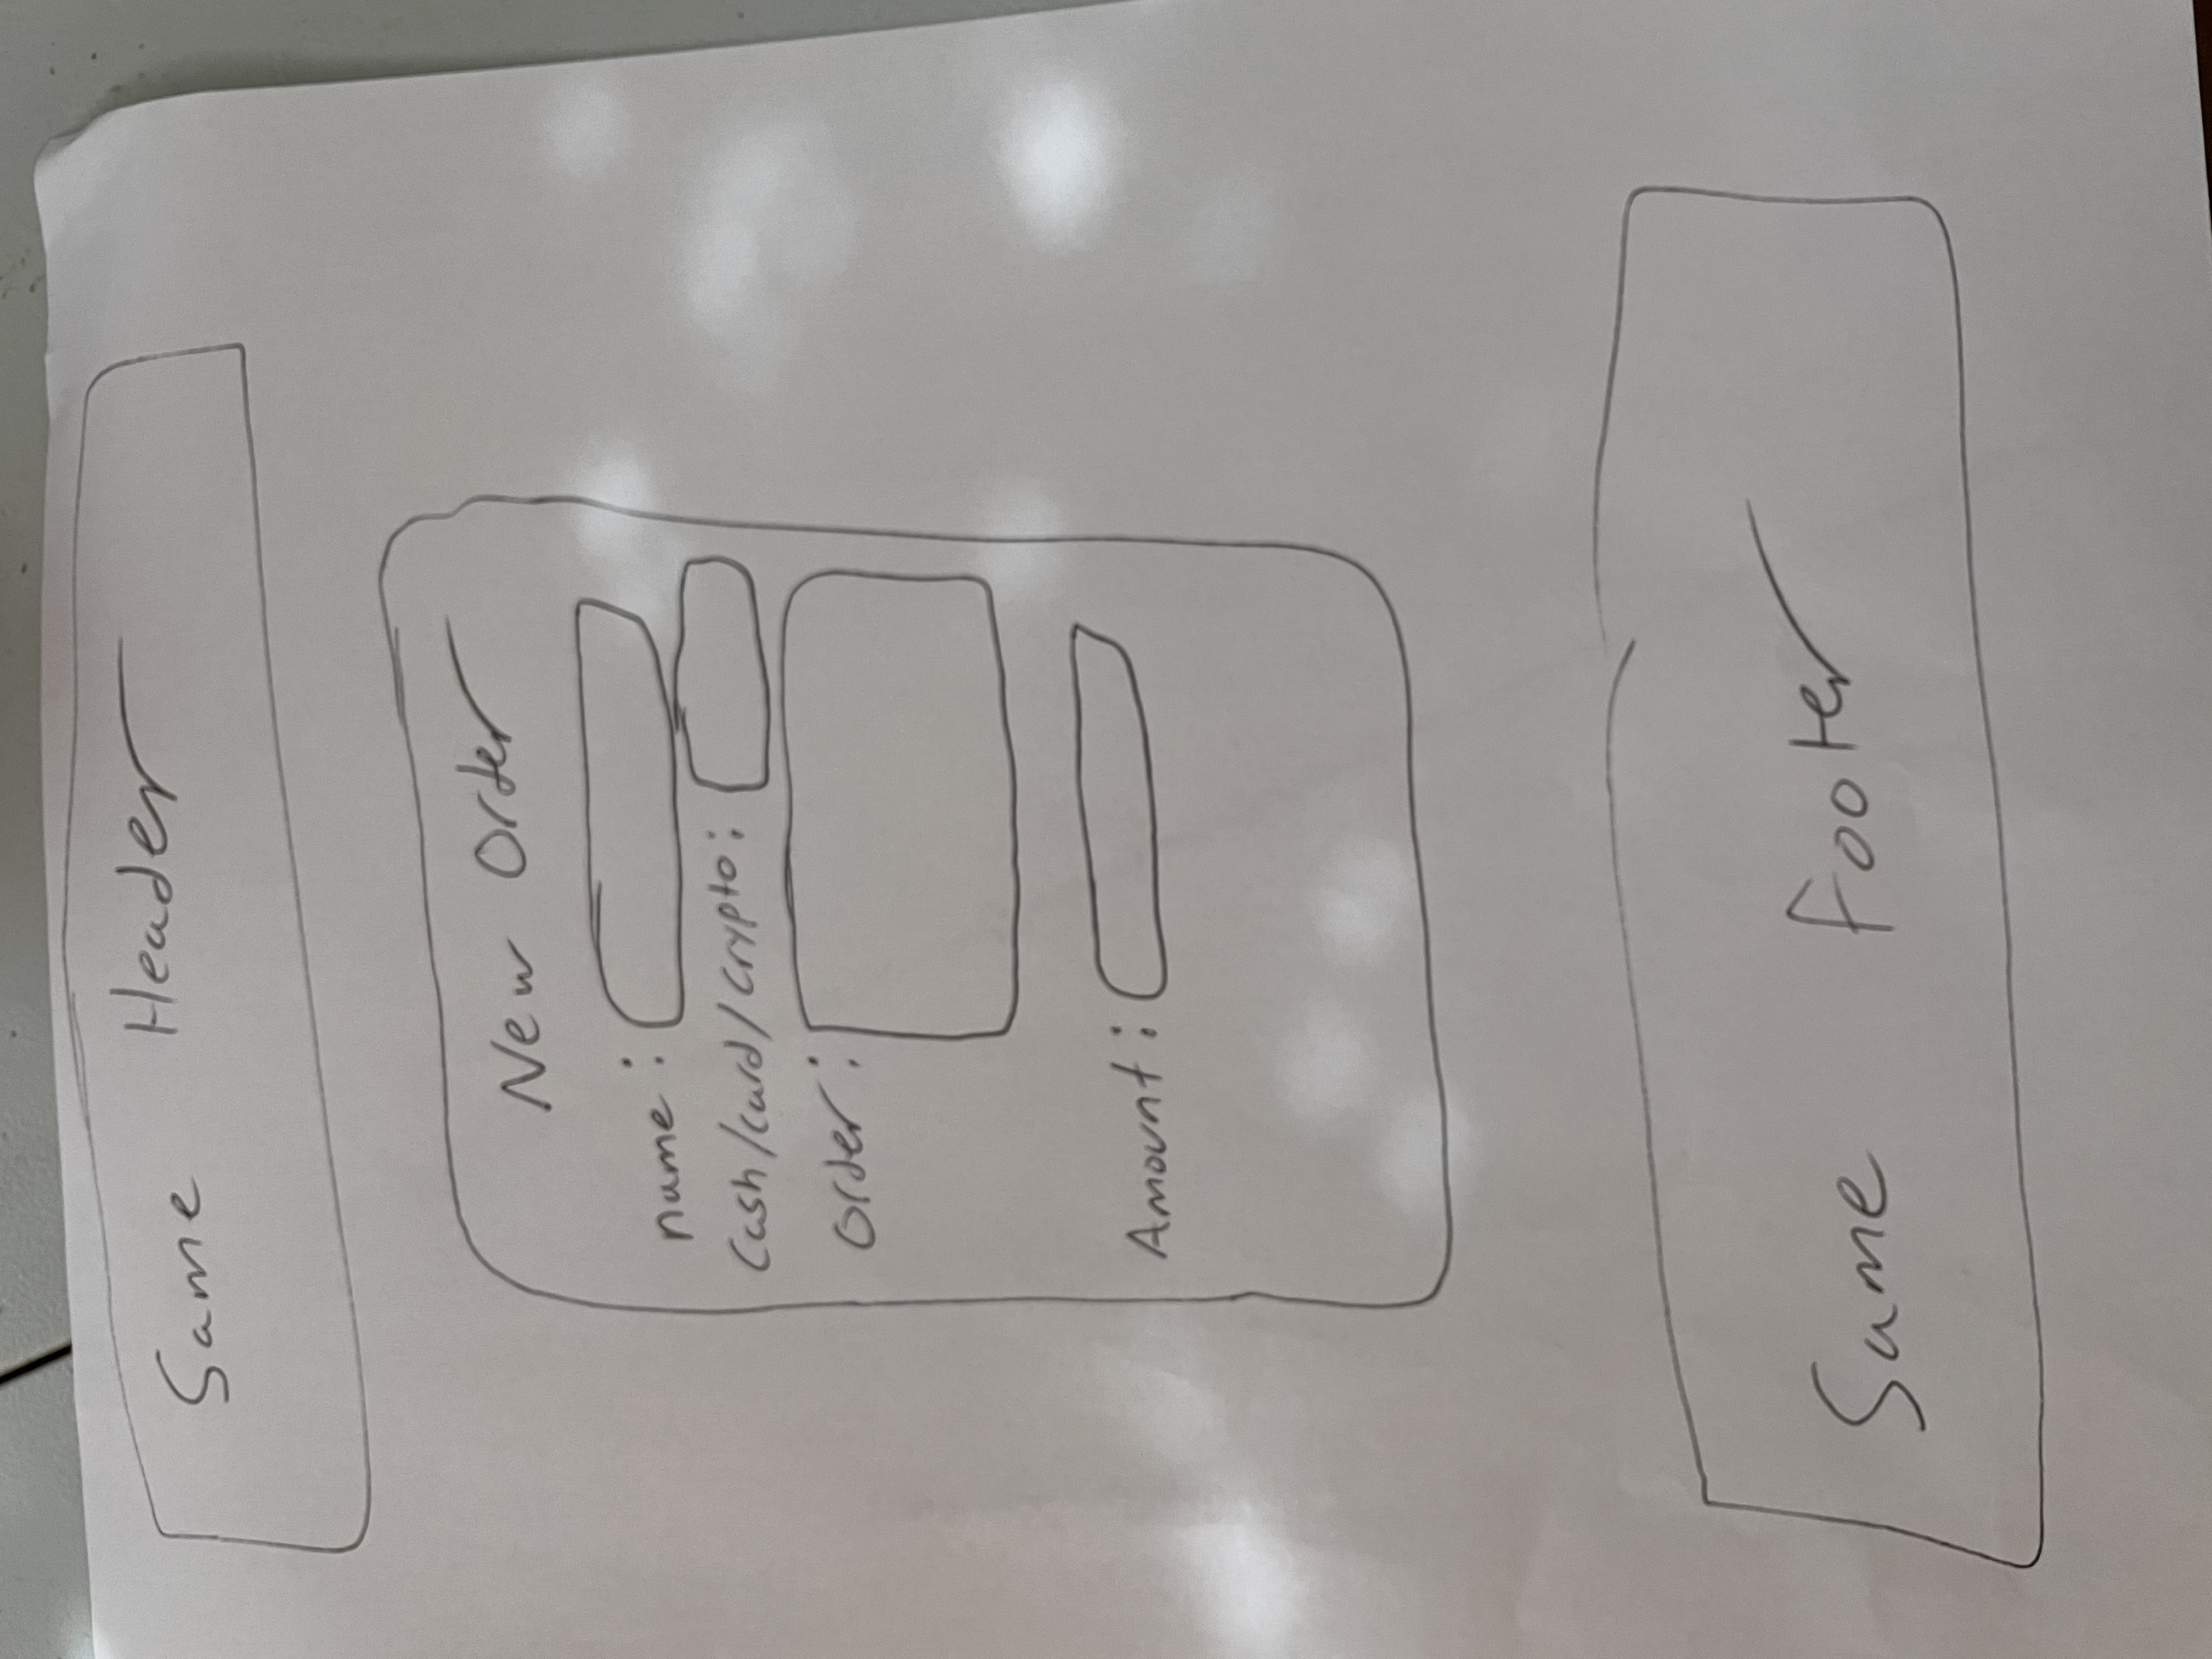 Same Header
New Order
name:
Cash/card/crypto:
order:
Amount:
Same Footer